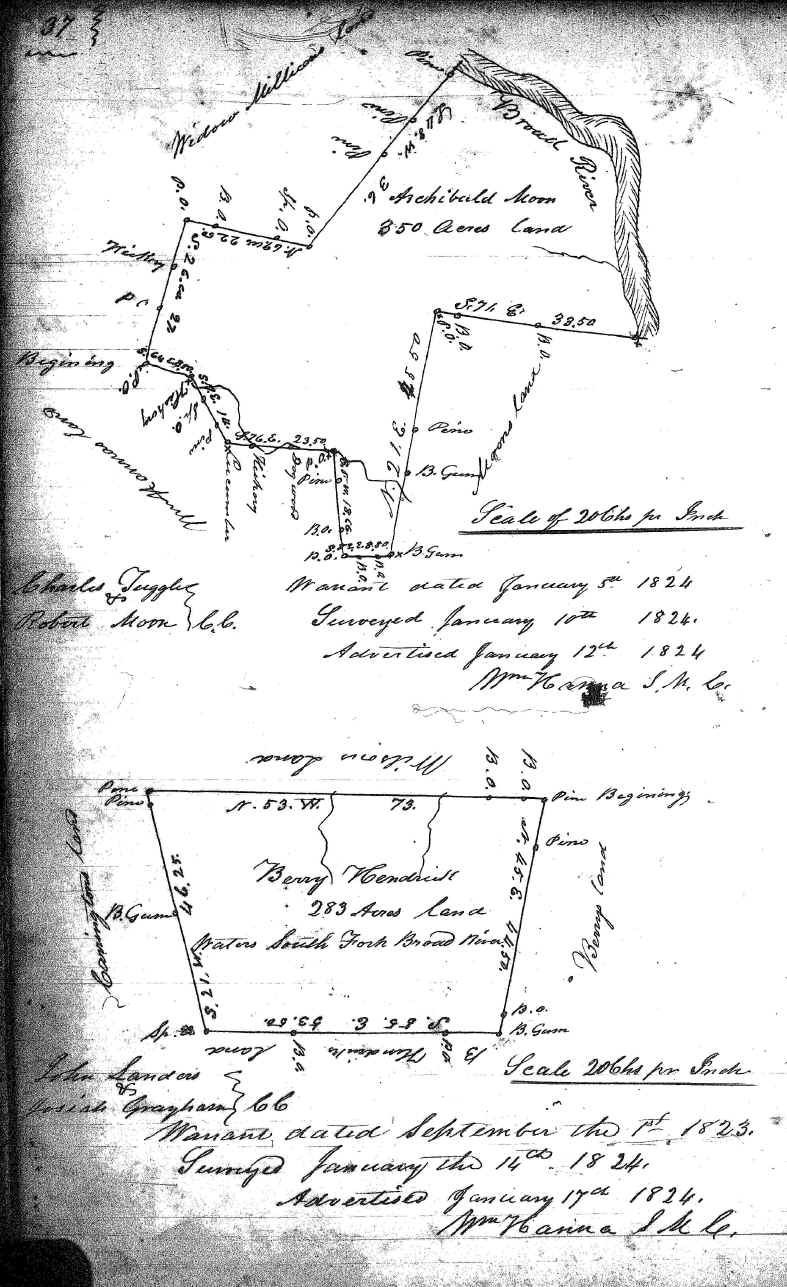 37
Widow Millicans land
Pine
Pine
Pine
S. 48. W.
36.
Broad River
Archibald Moon
350 Acres land
P.O.
B.O.
Sp. O.
P.O.
N. 69 W 22.
Hickory
P O
S. 26. W 27
Begining
P.O.
Hickory
Sp. O.
Pine
14.
Cucumber
S 76. E. 23.50
Hickory
Dogwood
Pine
B.O.
B.O.
18.66
B.O.
B.O.
B Gum
S. 71. E. 33.50
B.O.
B.O.
P.O.
Pine
B. Gum
N
Moons land
Wm Hannas land
Scale of 20 Chs pr Inch
Charles Tuggle
&
Robert Moon } C.C.
Warrant dated January 5th 1824
Surveyed January 10th 1824.
Advertised January 12th 1824
Wm Hanna S. M. C.
Wilsons Land
B.O.
B.O.
Pine
Pine
Pine Begining
N. 53. W. 73.
Pine
N. 45. E. 44.50.
Berry Hendrick
283 Acres land
Waters South Fork Broad River
B. Gum
S. 21. W. 49.25
Berrys land
B.O.
B. Gum
Sp.
S. 55. E. 53.50.
B.O.
B.O.
B Hendricks land
Scale 20 Chs pr Inch
John Landers
&
Josiah Grayham } CC
Warrant dated September the 1st 1823.
Surveyed January the 14th 1824.
Advertised January 17th 1824.
Wm Hanna S M C.